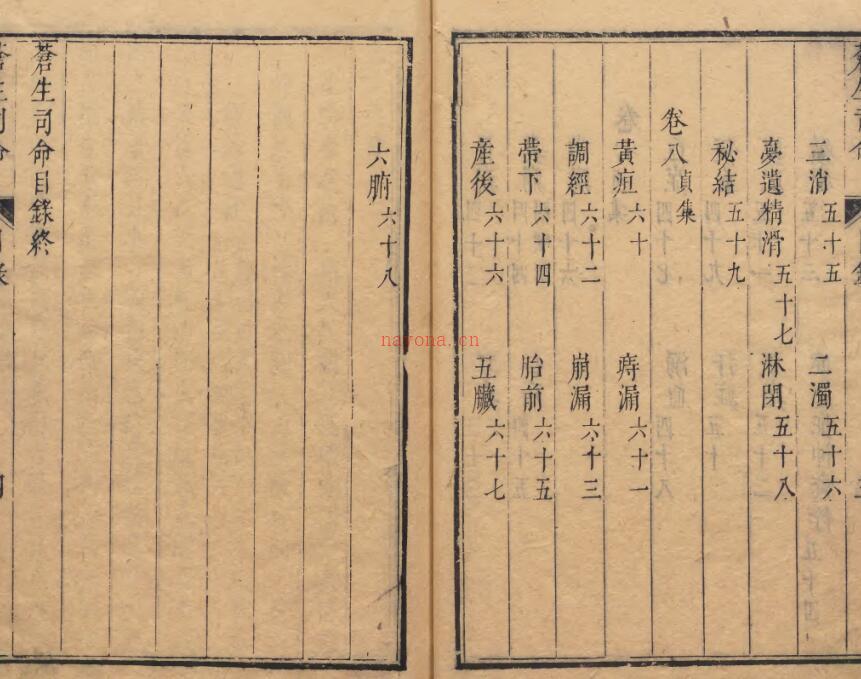 三消五十五 二濁五十六
夢遺精滑五十七 淋閉五十八
秘結五十九
卷八貞集
黃疸六十 痔漏六十一
調經六十二 崩漏六十三
帶下六十四 胎前六十五
產後六十六 五臟六十七
六腑六十八
蒼生司命目錄終
nayona.cn